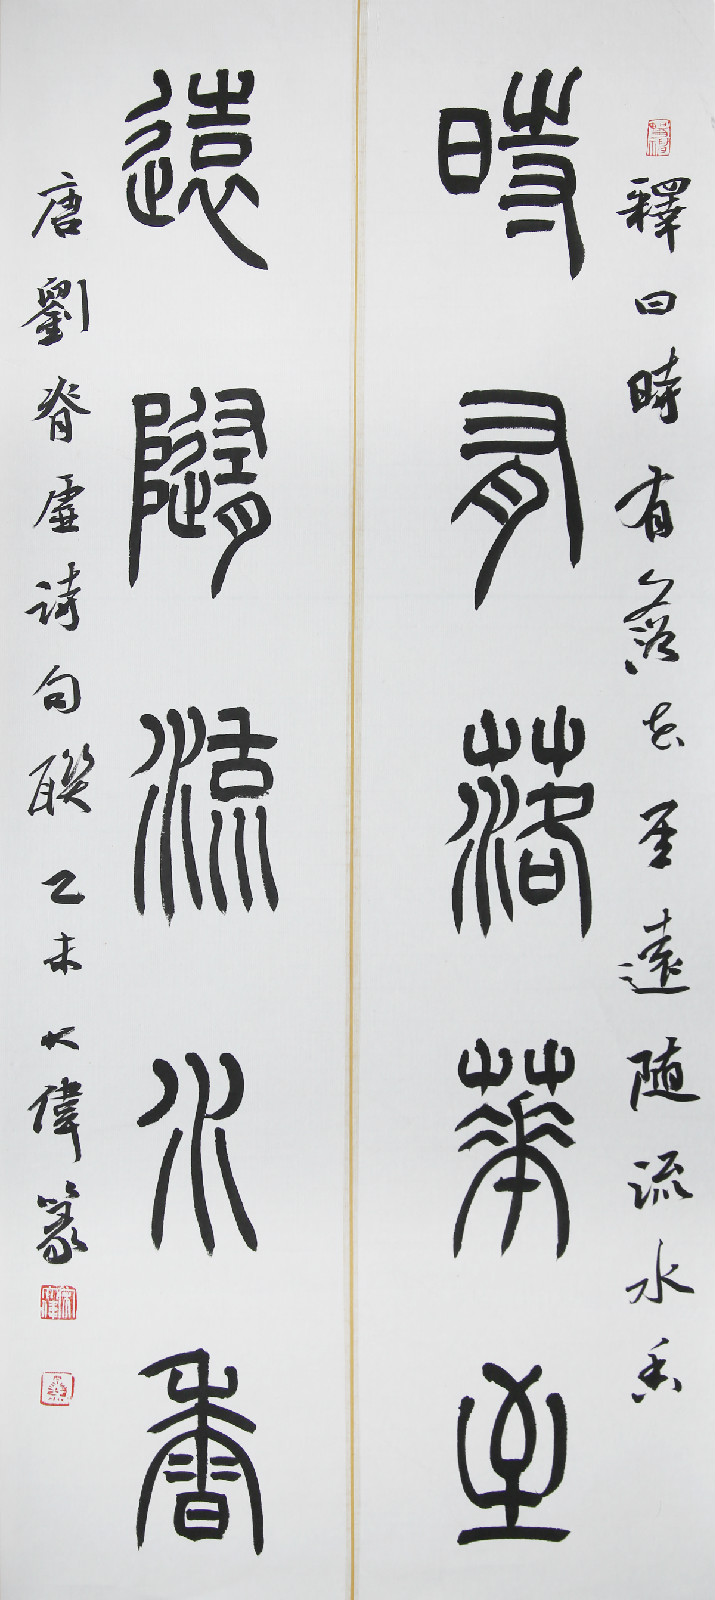 釋曰時有落花至遠隨流水香
時有落華至
遠隨流水香
唐劉脊虛詩句聯乙未大偉篆